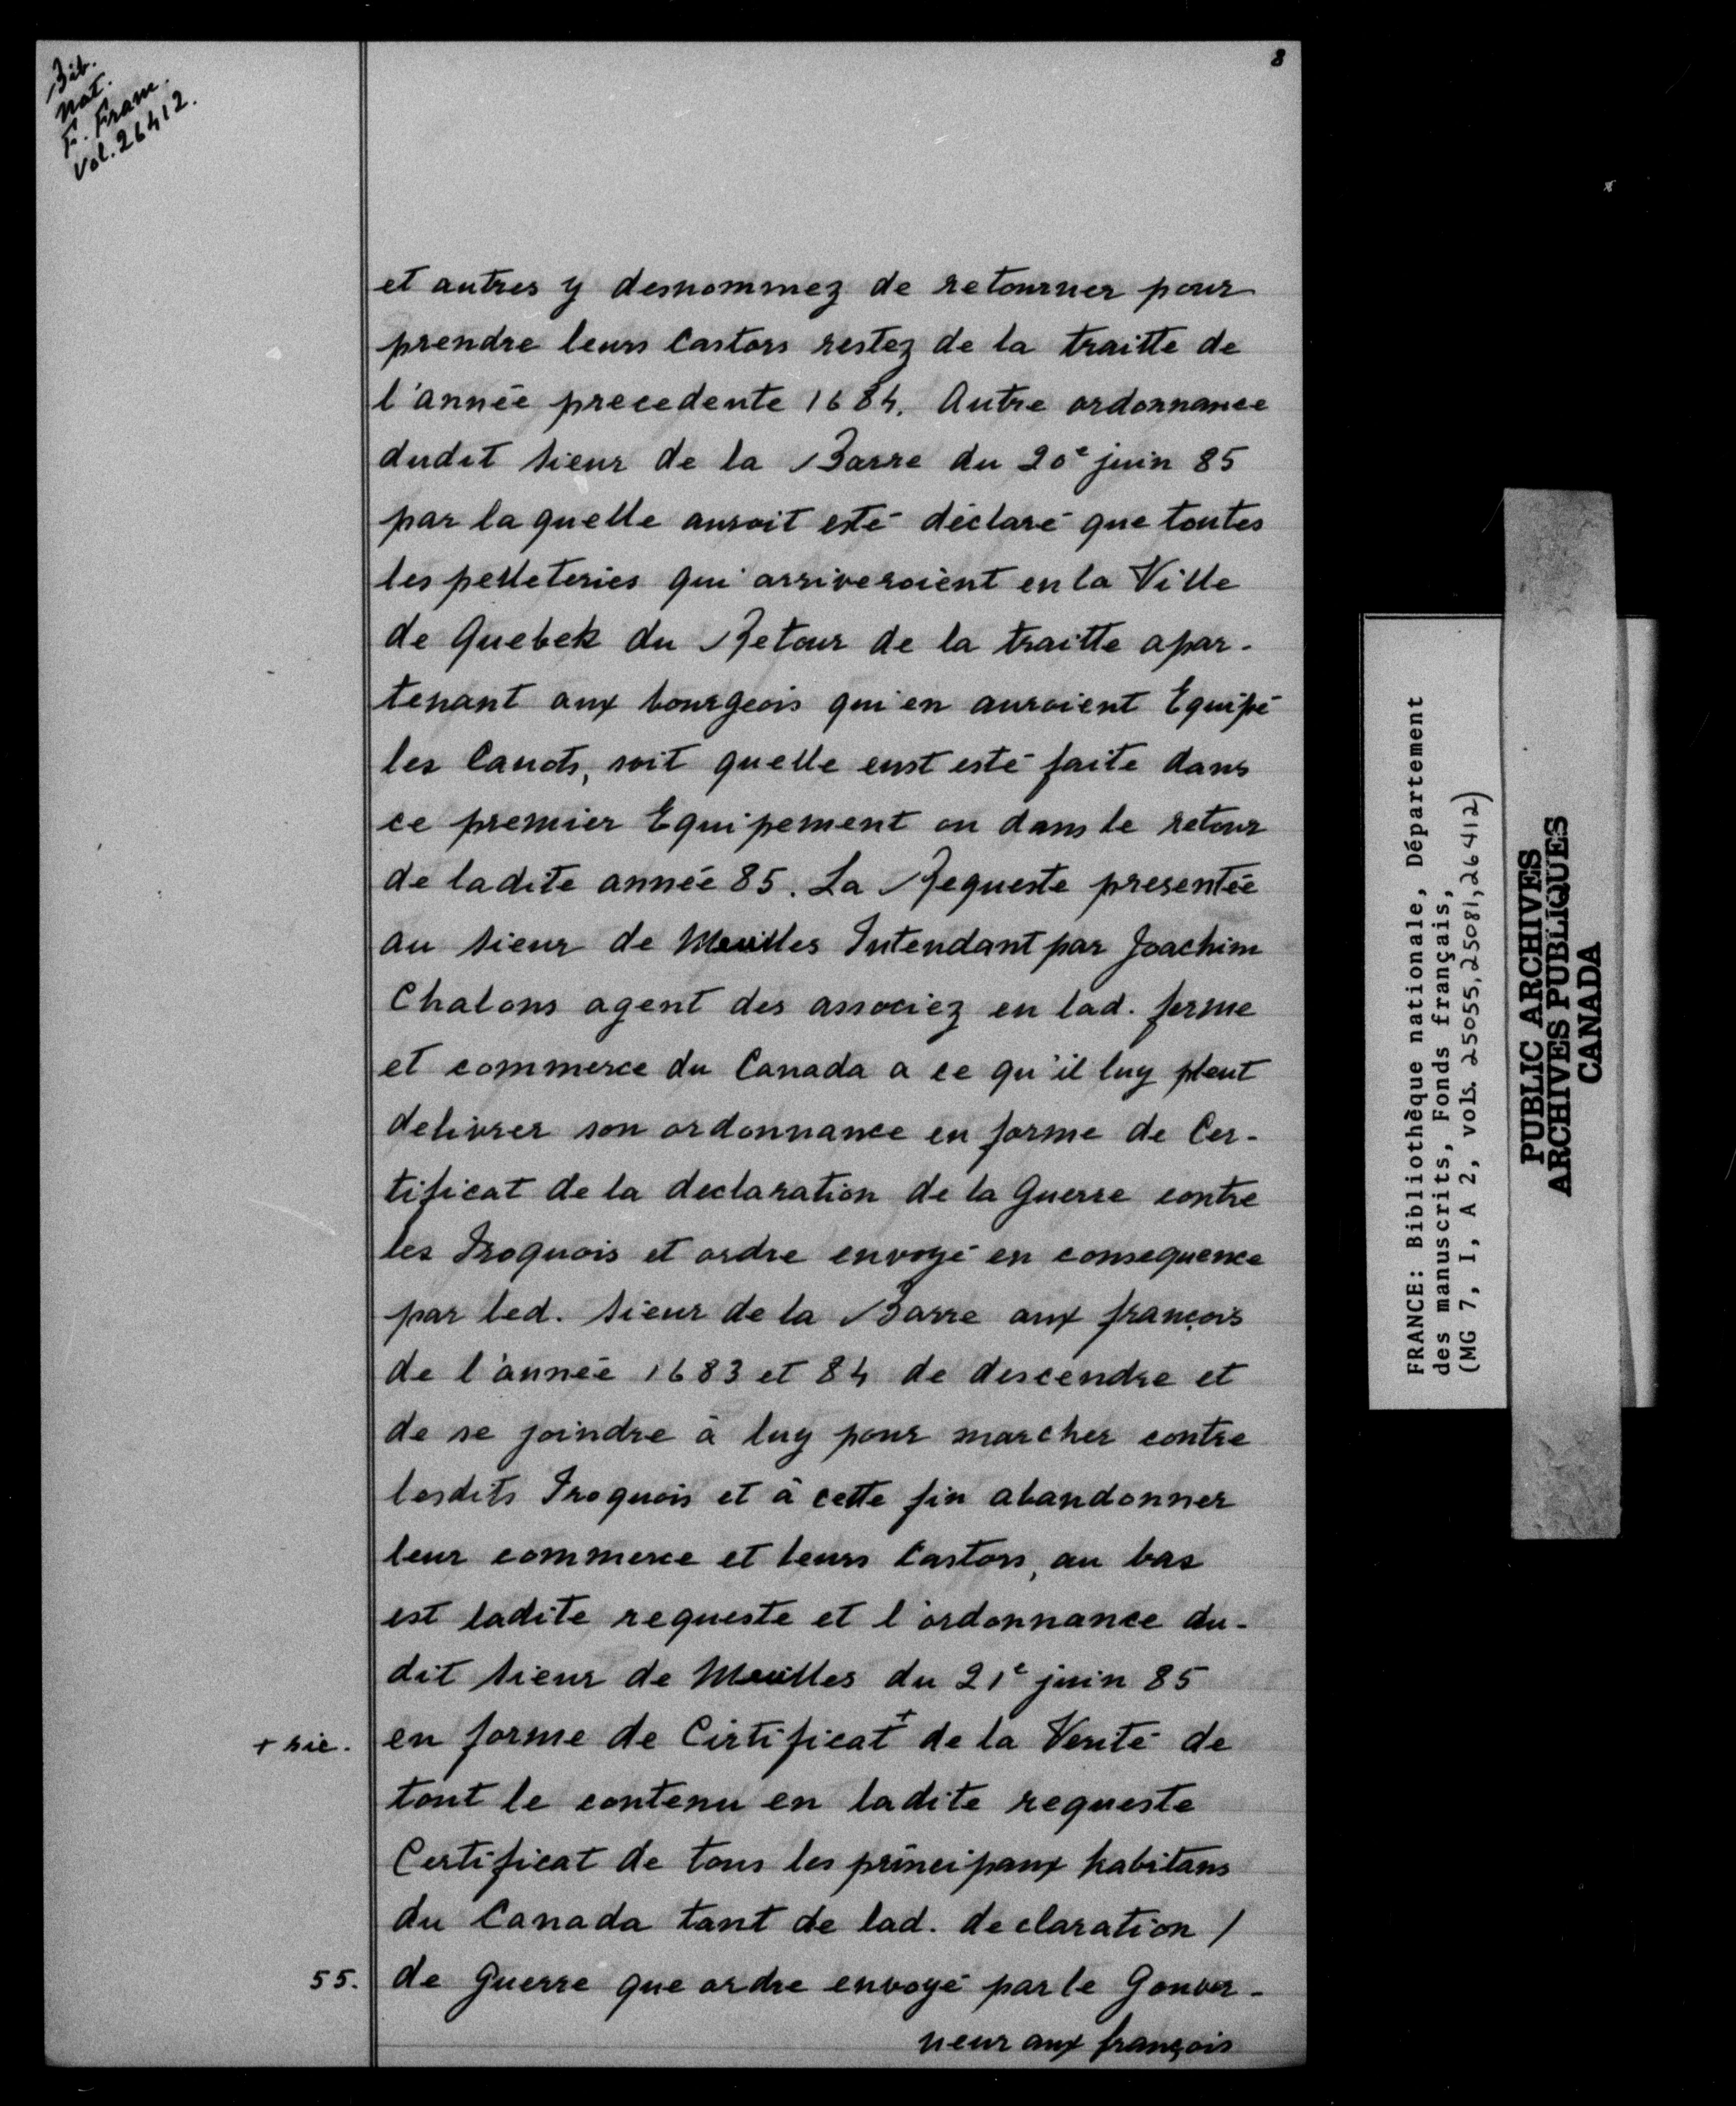 8
Bib.
nat.
F. Franc.
Vol. 26412.
et autres y desnommez de retourner pour
prendre leurs Castors restez de la traitte de
l'année precedente 1684. Autre ordonnance
dudit sieur de la Barre du 20e juin 85
par laquelle auroit esté déclaré que toutes
les pelleteries qui arriveroient en la Ville
de Quebek du Retour de la traitte apar-
tenant aux bourgeois qui en auroient Equipé
les Canots, soit quelle eust esté faite dans
ce premier Equipement ou dans le retour
de ladite année 85. La Requeste presentée
au sieur de Meulles Intendant par Joachim
Chalons agent des associez en lad. ferme
et commerce du Canada a ce qu'il luy pleut
delivrer son ordonnance en forme de Cer-
tificat de la declaration de la Guerre contre
les Iroquois et ordre envoyé en consequence
par led. sieur de la Barre aux françois
de l'année 1683 et 84 de descendre et
de se joindre à luy pour marcher contre
lesdits Iroquois et à cette fin abandonner
leur commerce et leurs Castors, au bas
est ladite requeste et l'ordonnance du-
dit sieur de Meulles du 21e juin 85
+ sic. en forme de Cirtificat + de la Verité de
tout le contenu en ladite requeste
Certificat de tous les principaux habitans
du Canada tant de lad. declaration /
55. de Guerre que ordre envoyé par le Gouver-
neur aux françois
FRANCE: Bibliothèque nationale, Département
des manuscrits, Fonds français,
(MG 7, I, A 2, vols. 25055, 25081, 26412)
PUBLIC ARCHIVES
ARCHIVES PUBLIQUES
CANADA